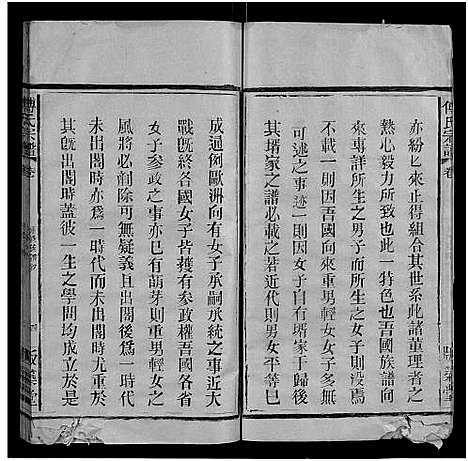 亦紛紛來止得組合其世系此諸董理者之
熱心毅力所致也此一特色也吾國族譜向
來專詳所生之男子而所生之女子則沒焉
不載一則因吾國向來重男輕女女子多無
可述之事迹一則因女子自有壻家于歸後
其壻家之譜必載之若近代則男女平等已
成通例歐洲向有女子承嗣承統之事大
戰旣終各國女子皆獲有參政權吾國各省
女子參政之事亦已有萌芽則重男輕女之
風將必剷除可無疑義且出閣後爲一時代
未出閣時亦爲一時代而未出閣時尤重於
其旣出閣時蓋彼一生之學問均成立於是
傅氏宗譜 卷
四
版築堂